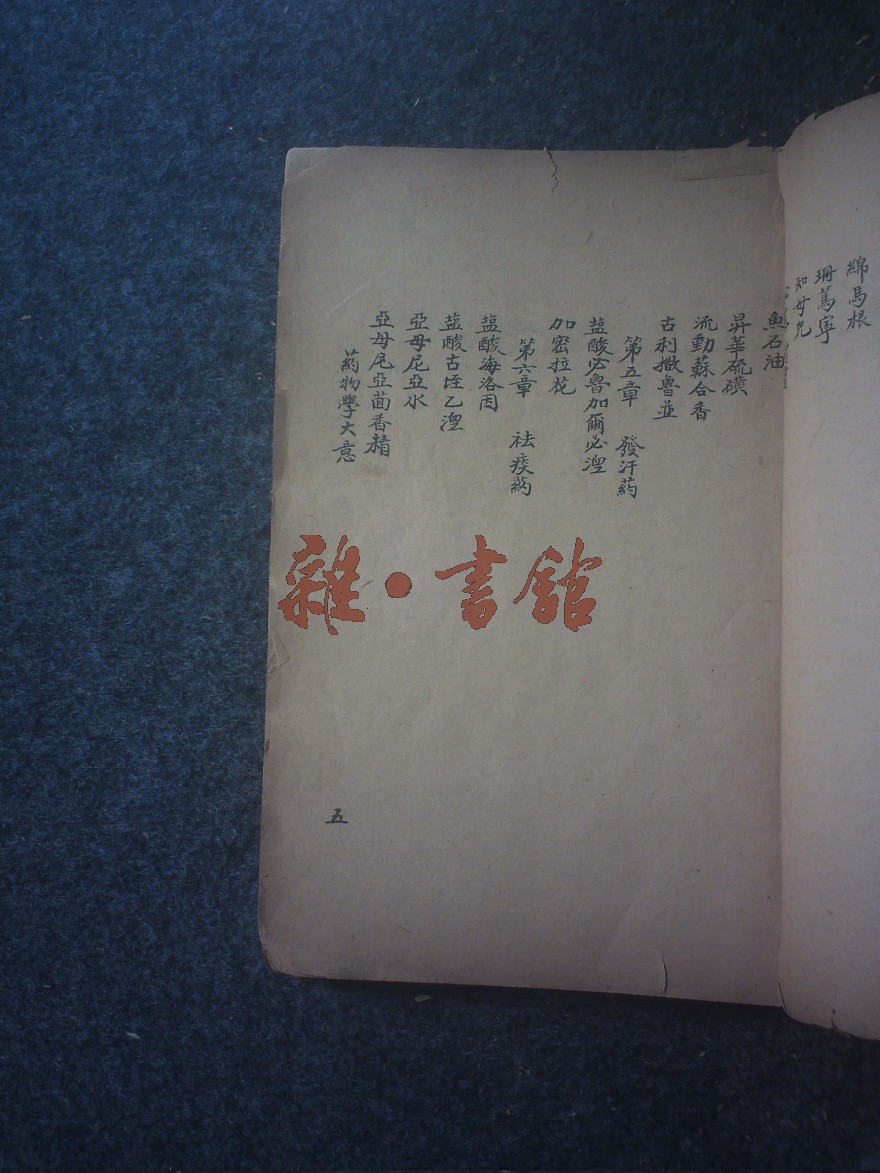 綿馬根
珊篤寧
魚石油
昇華硫磺
流動蘇合香
古利撒魯並
第五章　發汗药
盐酸必魯加爾必涅
加密拉花
第六章　祛痰药
盐酸海洛因
盐酸古垤乙涅
亞母尼亞水
亞母尼亞茴香精
药物學大意
五
雜·書館